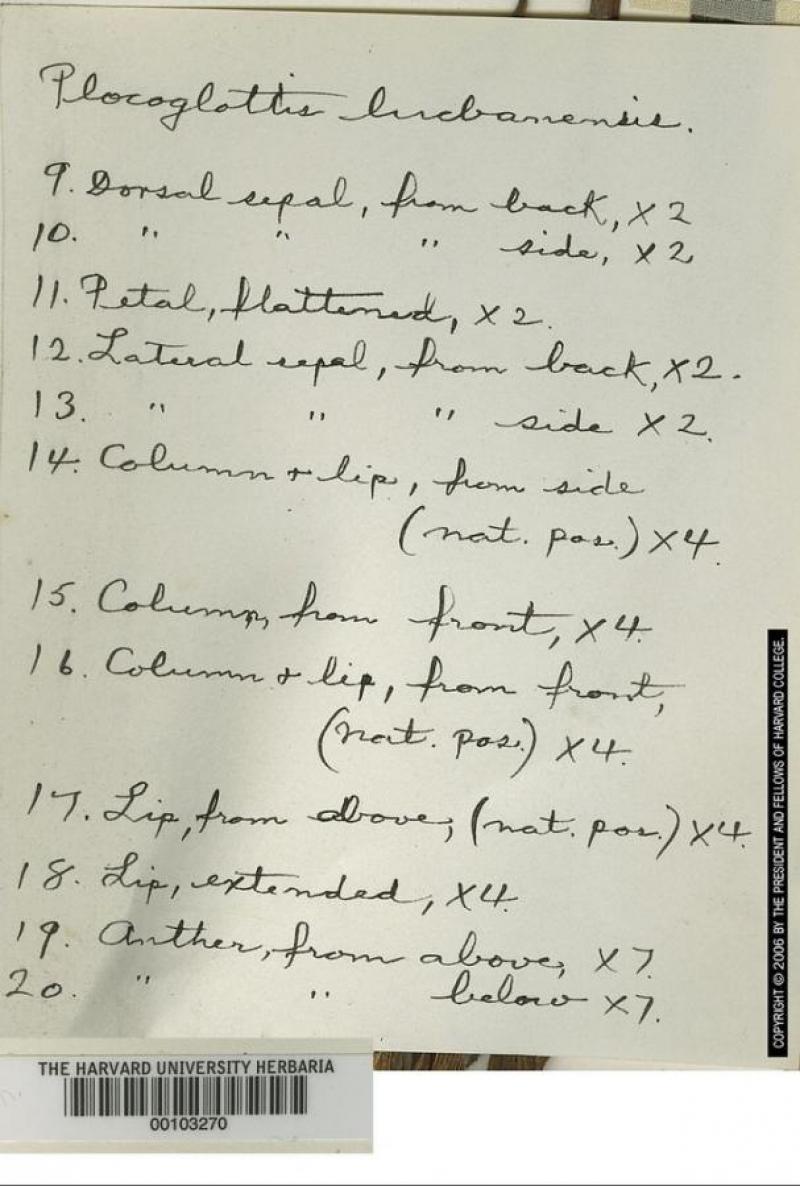 Plocoglottis lucbanensis.
9. Dorsal sepal, from back, X 2
10. " " " side, X 2
11. Petal, flattened, X 2.
12. Lateral sepal, from back, X2.
13. " " " side X 2.
14. Column + lip, from side
(nat. pos.) X4.
15. Column, from front, X4.
16. Column + lip, from front,
(nat. pos.) X4.
17. Lip, from above, (nat. pos.) X4.
18. Lip, extended, X4.
19. Anther, from above, X7.
20. " " below X7.
THE HARVARD UNIVERSITY HERBARIA
00103270
COPYRIGHT © 2006 BY THE PRESIDENT AND FELLOWS OF HARVARD COLLEGE.